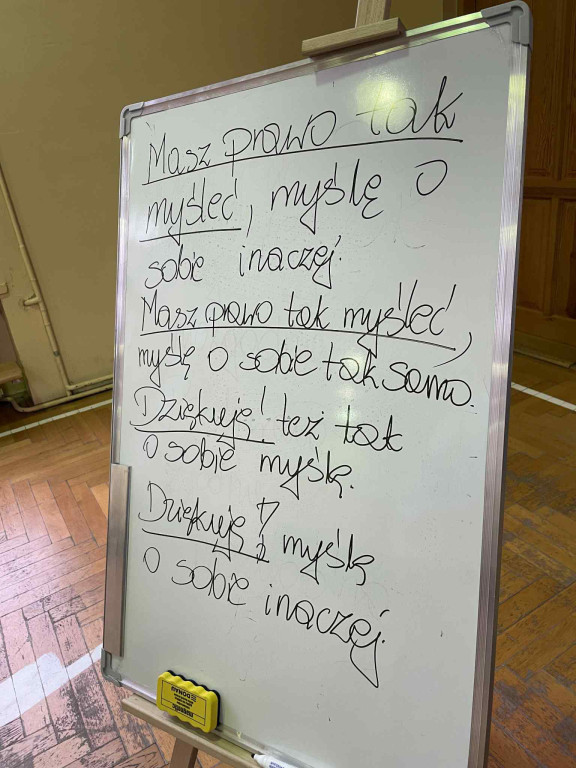 Masz prawo tak
myśleć, myślę o
sobie inaczej.
Masz prawo tak myśleć,
myślę o sobie tak samo.
Dziękuję! też tak
o sobie myślę.
Dziękuję! myślę
o sobie inaczej.
DONAU